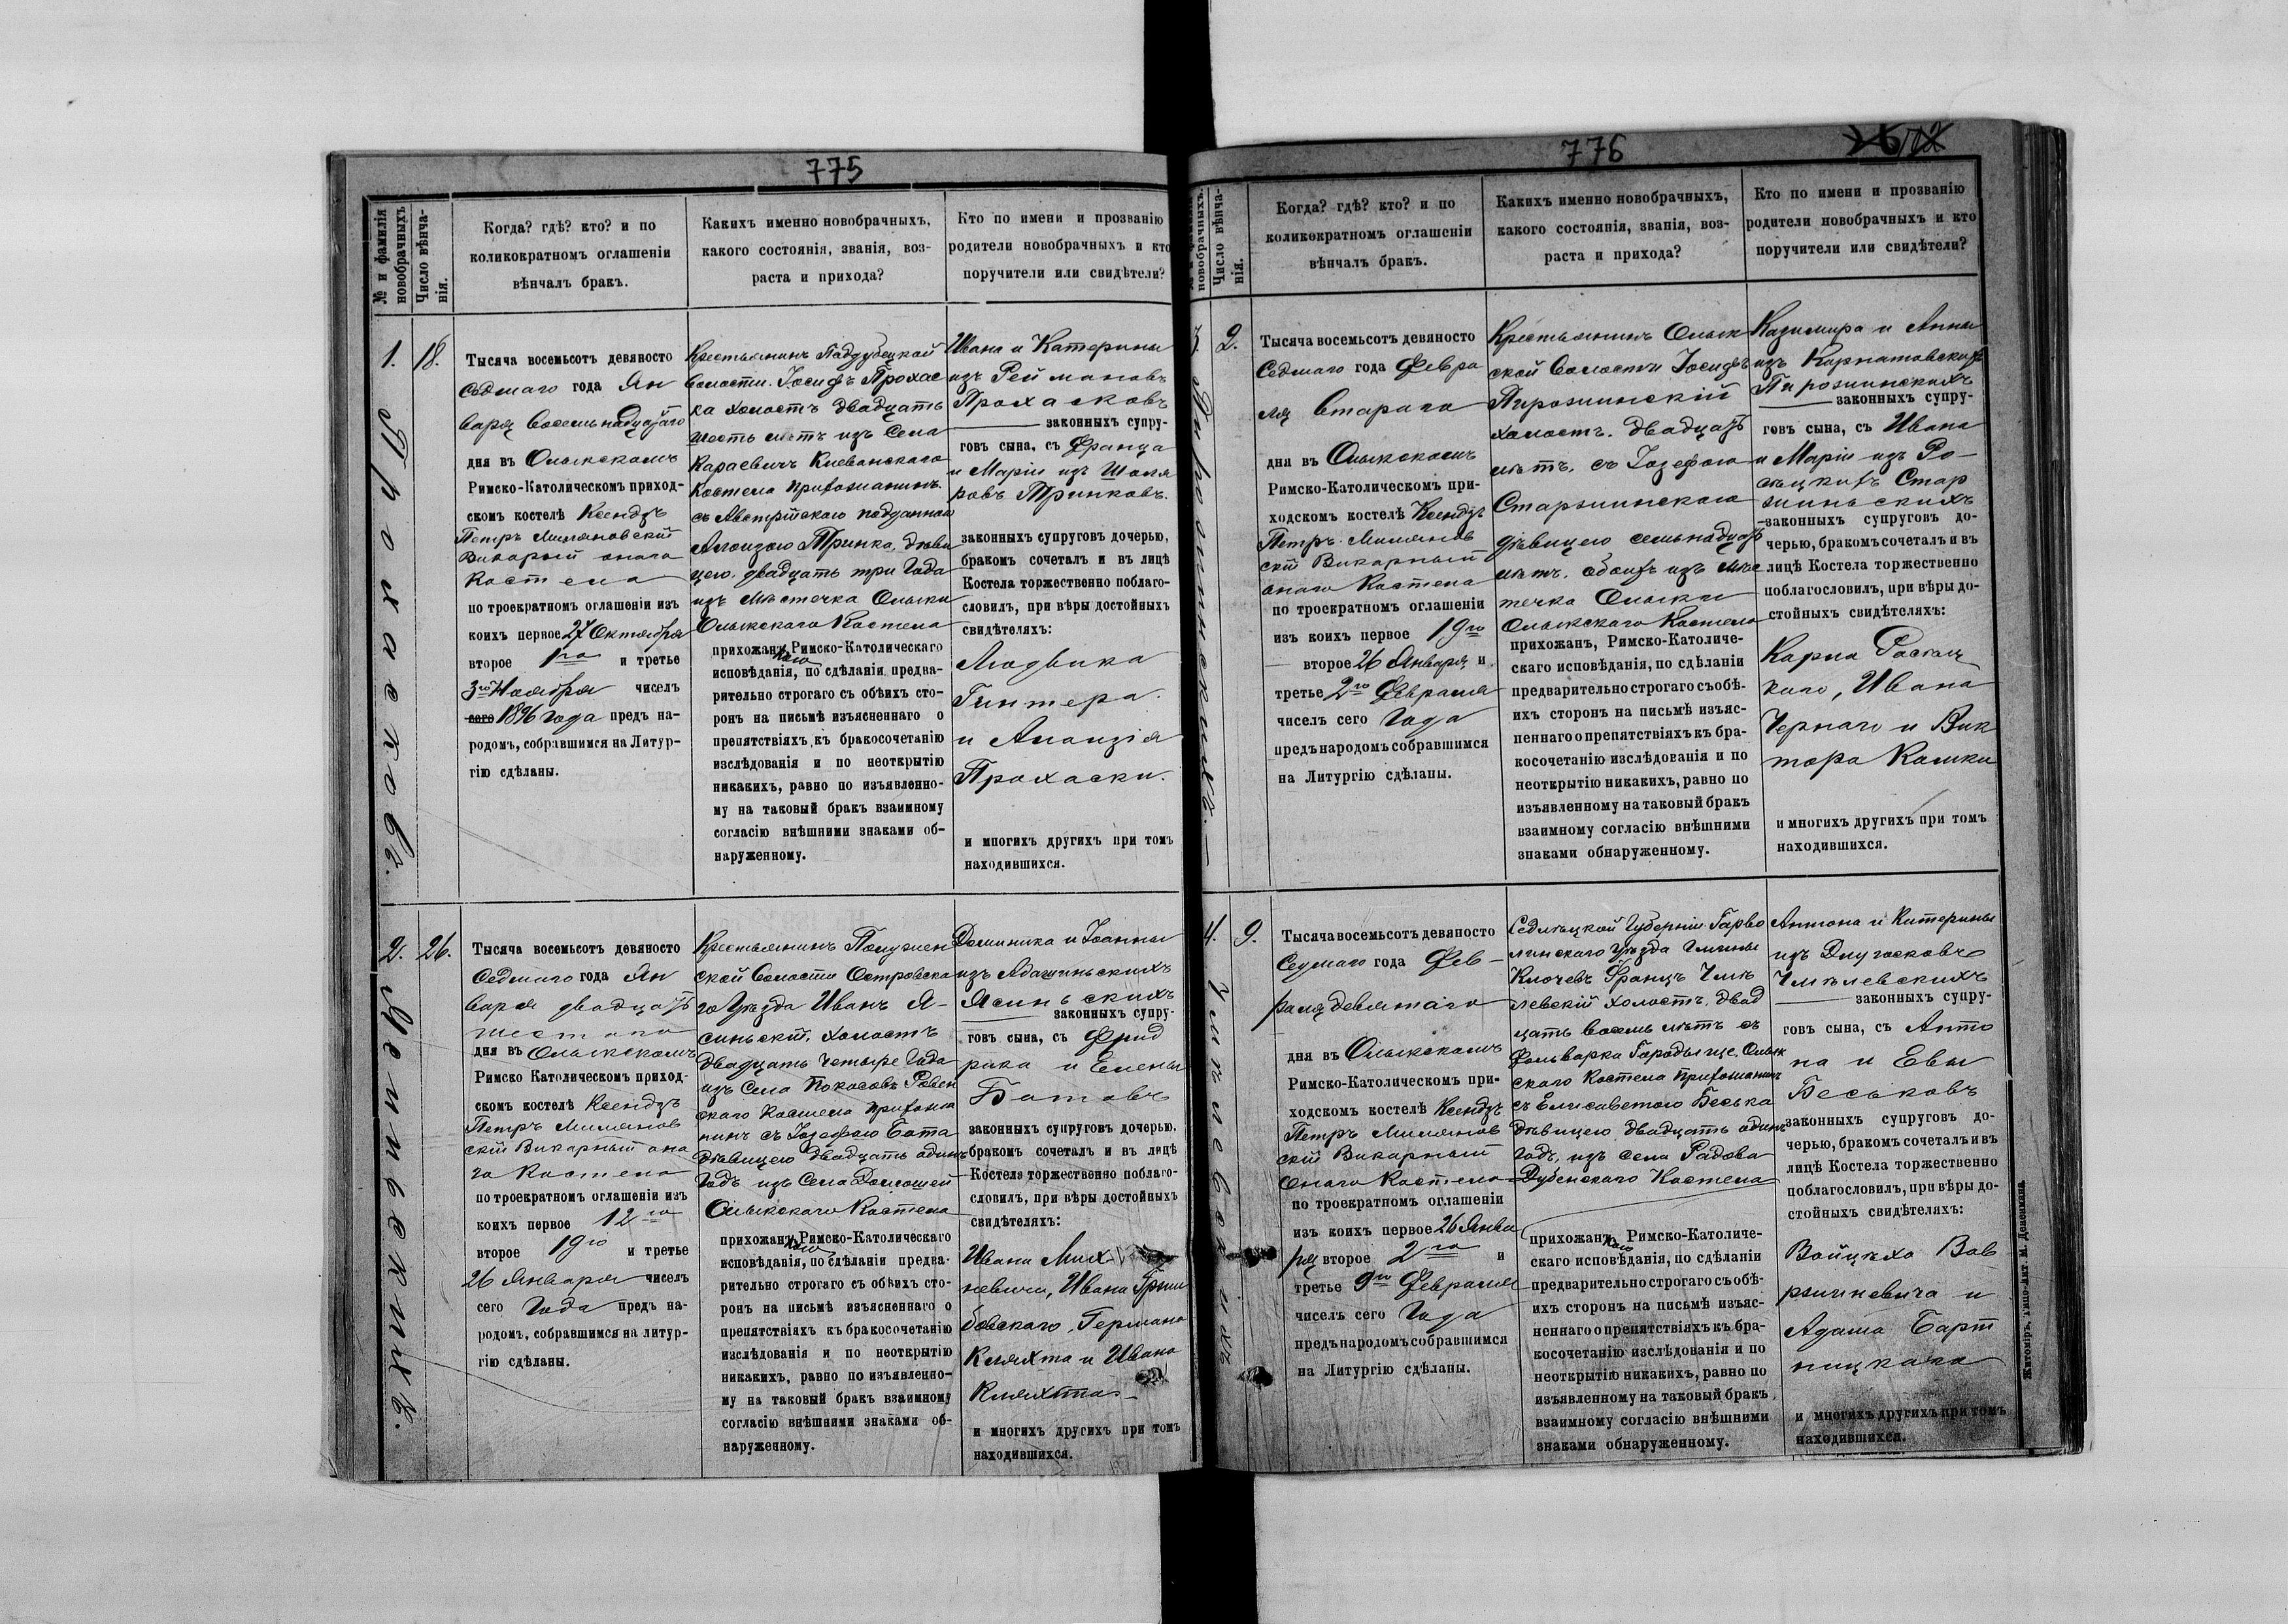 775
№ и фамилія новобрачныхъ
Число вѣнча-
нія.
Когда? гдѣ? кто? и по
коликократномъ оглашеніи
вѣнчалъ бракъ.
Какихъ именно новобрачныхъ,
какого состоянія, званія, воз-
раста и прихода?
Кто по имени и прозванію
родители новобрачныхъ и кто
поручители или свидѣтели?
1.
18.
Тысяча восемьсотъ девяносто
Седмаго года Ян
варя восемьнадцатаго
дня въ Олыкскомъ
Римско-Католическомъ приход-
скомъ костелѣ Ксендзъ
Петръ
Викарный онаго
Костела
по троекратномъ оглашеніи изъ
коихъ первое 27 Октября
второе 1го и третье
3го Ноября чиселъ
сего 1896 года предъ на-
родомъ, собравшимся на Литур-
гію сдѣланы.
Крестьянинъ Поддубецкой
волости Іосифъ Прохас
ка холостъ двадцать
шесть лѣтъ изъ села
Караевичъ Клеванскаго
Костела прихожанинъ
съ Австрійскаго подданнаго
Алоизою Тринка, дѣви
цею двадцать три года
изъ Мѣстечка Олыки
Олыкскаго Костела
прихожан Римско-Католическаго
исповѣданія, по сдѣланіи предва-
рительно строгаго съ обѣихъ сто-
ронъ на письмѣ изъясненнаго о
препятствіяхъ къ бракосочетанію
изслѣдованія и по неоткрытію
никакихъ, равно по изъявленно-
му на таковый бракъ взаимному
согласію внѣшними знаками об-
наруженному.
Ивана и Катерины
изъ Реймановъ
Прохасковъ
законныхъ супру-
говъ сына, съ Франца
и Маріи изъ Шоля
ровъ Тринковъ.
законныхъ супруговъ дочерью,
бракомъ сочеталъ и въ лицѣ
Костела торжественно поблаго-
словилъ, при вѣры достойныхъ
свидѣтеляхъ:
Людвика
Гинтера
и Алоизія
Прохаски.
и многихъ другихъ при томъ
находившихся.
2.
26.
Тысяча восемьсотъ девяносто
Седмаго года Ян
варя двадцать
шестаго
дня въ Олыкскомъ
Римско Католическомъ приход-
скомъ костелѣ Ксендзъ
Петръ
скій Викарный она
го Костела
по троекратномъ оглашеніи изъ
коихъ первое 12го
второе 19го и третье
26 Января чиселъ
сего Года предъ на-
родомъ, собравшимся на литур-
гію сдѣланы.
Крестьянинъ
ской волости Островска
го Уѣзда Иванъ Я-
синьскій, холостъ
двадцать четыре года
изъ села Покосовъ Ровен
скаго Костела прихожа
нинъ съ Іозефою Бота
дѣвицею двадцать одинъ
годъ изъ Села
Олыкскаго Костела
прихожан Римско-Католическаго
исповѣданія, по сдѣланіи предва-
рительно строгаго съ обѣихъ сто-
ронъ на письмѣ изъясненнаго о
препятствіяхъ къ бракосочетанію
изслѣдованія и по неоткрытію
никакихъ, равно по изъявленно-
му на таковый бракъ взаимному
согласію внѣшними знаками об-
наруженному.
Доминика и Іоанны
изъ
Ясиньскихъ
законныхъ супру-
говъ сына, съ Фрид
рика и Елены
Ботовъ
законныхъ супруговъ дочерью,
бракомъ сочеталъ и въ лицѣ
Костела торжественно поблаго-
словилъ, при вѣры достойныхъ
свидѣтеляхъ:
Ивана Мих
невича, Ивана
бовскаго, Германа
Кляхта и Ивана
Кляхта
и многихъ другихъ при томъ
находившихся.
776
новобрачныхъ.
Число вѣнча-
нія.
Когда? гдѣ? кто? и по
коликократномъ оглашеніи
вѣнчалъ бракъ.
Какихъ именно новобрачныхъ,
какого состоянія, званія, воз-
раста и прихода?
Кто по имени и прозванію
родители новобрачныхъ и кто
поручители или свидѣтели?
2.
Тысяча восемьсотъ девяносто
Седмаго года Февра
ля втораго
дня въ Олыкскомъ
Римско-Католическомъ при-
ходскомъ костелѣ Ксендзъ
Петръ
скій Викарный
онаго Костела
по троекратномъ оглашеніи
изъ коихъ первое 19го
второе 26 Января и
третье 2го Февраля
чиселъ сего Года
предъ народомъ собравшимся
на Литургію сдѣланы.
Крестьянинъ Олык
ской волости Іосифъ
Пирожинскій
холостъ. двадцать
лѣтъ. съ Іозефою
Старжинскою
дѣвицею семьнадцать
лѣтъ. обоихъ изъ Мѣс
течка Олыки
Олыкскаго Костела
прихожанъ, Римско-Католиче-
скаго исповѣданія, по сдѣланіи
предварительно строгаго съ обѣ-
ихъ сторонъ на письмѣ изъяс-
неннаго о препятствіяхъ къ бра-
косочетанію изслѣдованія и по
неоткрытію никакихъ, равно по
изъявленному на таковый бракъ
взаимному согласію внѣшними
знаками обнаруженному.
Казимира и Анны
изъ Карпатовскихъ
Пирожинскихъ
законныхъ супру-
говъ сына, съ Ивана
и Маріи изъ Ро-
Стар
жиньскихъ
законныхъ супруговъ до-
черью, бракомъ сочеталъ и въ
лицѣ Костела торжественно
поблагословилъ, при вѣры до-
стойныхъ свидѣтеляхъ:
Карла
Ивана
Чернаго и Вик
тора
и многихъ другихъ при томъ
находившихся.
4.
9.
Тысяча восемьсотъ девяносто
Седмаго года Фев-
раля девятаго
дня въ Олыкскомъ
Римско-Католическомъ при-
ходскомъ костелѣ Ксендзъ
Петръ
скій Викарный
онаго Костела
по троекратномъ оглашеніи
изъ коихъ первое 26 Янва
ря второе 2го и
третье 9го Февраля
чиселъ сего Года
предъ народомъ собравшимся
на Литургію сдѣланы.
Сѣдлецкой Губерніи Гарво
линскаго Уѣзда Гмины
Клочевъ Францъ Хмѣ
левскій холостъ. двад
цать восемь лѣтъ съ
Фольварка Городыще, Олык
скаго Костела прихожанинъ
съ Елисаветою Беська
дѣвицею двадцать одинъ
годъ, изъ села Радова
Дубенскаго Костела
прихожан Римско-Католиче-
скаго исповѣданія, по сдѣланіи
предварительно строгаго съ обѣ-
ихъ сторонъ на письмѣ изъяс-
неннаго о препятствіяхъ къ бра-
косочетанію изслѣдованія и по
неоткрытію никакихъ, равно по
изъявленному на таковый бракъ
взаимному согласію внѣшними
знаками обнаруженному.
Антона и Катерины
изъ Длугасковъ
Хмѣлевскихъ
законныхъ супру-
говъ сына, съ Анто
на и Евы
Беськовъ
законныхъ супруговъ до-
черью, бракомъ сочеталъ и въ
лицѣ Костела торжественно
поблагословилъ, при вѣры до-
стойныхъ свидѣтеляхъ:
Войцѣха Вав
ржинкевича и
Адама Барт
ницкаго
и многихъ другихъ при томъ
находившихся.
Житоміръ, Типо-лит. М. Дененмана